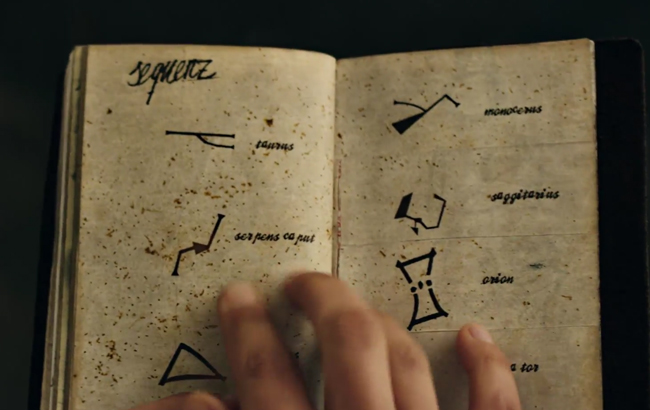 sequenz
taurus
serpens caput
monocerus
saggitarius
orion